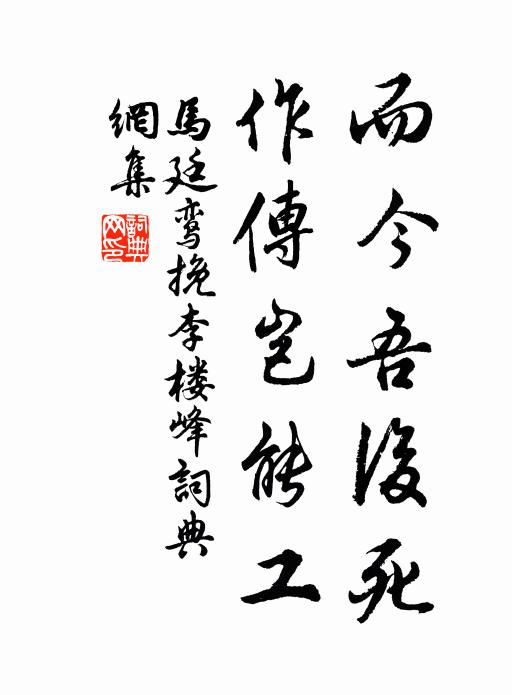 而今吾後死
作傳豈能工
馬廷鸾挽李楼峰詞典
網集
詞典
网印